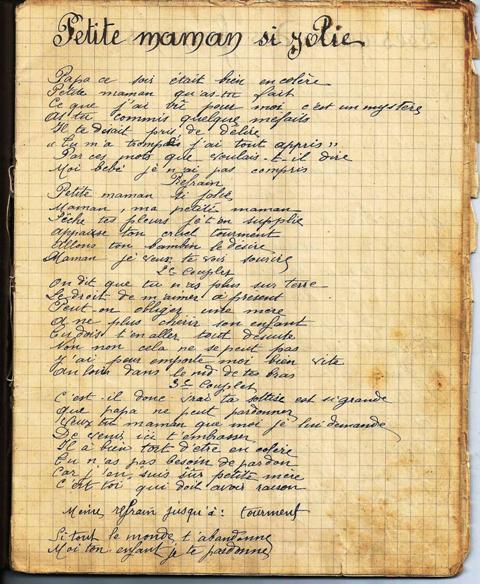 Petite maman si jolie
Papa ce soir était bien en colère
Petite maman qu'as-tu fait
Ce que j'ai vu pour moi c'est un mystère
As tu commis quelque mefaits
Il te disait pris de délire
"Tu m'a trompés j'ai tout appris"
Par ces mots que voulais-t-il dire
Moi bébé je n'ai pas compris
Refrain
Petite maman si jolie
Maman ma petite maman
Sèche tes pleurs je t'en supplie
appaise ton cruel tourment
Allons ton bambin le désire
Maman je veux te voir sourire
2e Couplet
On dit que tu n'as plus sur terre
Le droit de m'aimer a présent
Peut-on obliger une mère
A ne plus chérir son enfant
Tu dois t'en aller tout de suite
Non non cela ne se peut pas
J'ai peur emporte moi bien vite
Au loin dans le nid de tes bras
3e Couplet
C'est-il donc vrai ta sottise est si grande
Que papa ne peut pardonner
Veux tu maman que moi je lui demande
De venir ici t'embrasser
Il a bien tort d'etre en colère
Tu n'as pas besoin de pardon
Car j'en suis sûr petite mère
C'est toi qui doit avoir raison
Meme refrain jusqu'à : tourment
Si tout le monde t'abandonne
Moi ton enfant je te pardonne